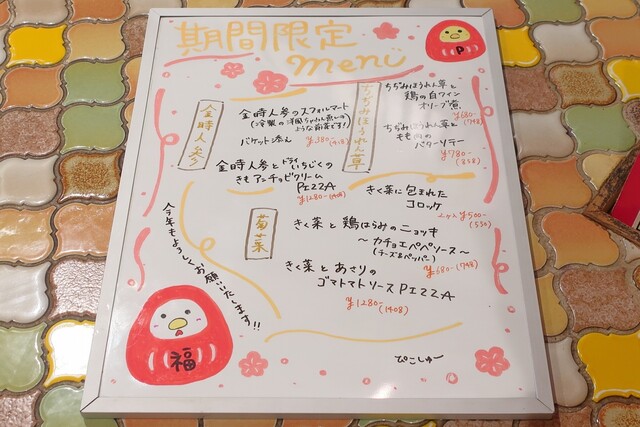 期間限定
menu
P
金時人参
金時人参のスフォルマート
(冷製の洋風ちゃわん蒸しの
ような前菜です!)
バケット添え ¥380-(418)
金時人参とドライいちじくの
きもアンチョビクリーム
PIZZA
¥1280-(1408)
ちぢみほうれん草
ちぢみほうれん草と
鶏の白ワイン
オリーブ煮
¥680-(748)
ちぢみほうれん草と
もも肉の
バターソテー
¥780-(858)
菊菜
きく菜に包まれた
コロッケ
¥500-
(550)
きく菜と鶏はらみのニョッキ
〜カチョエペペソース〜
(チーズ&ペッパー)
¥680-(748)
きく菜とあさりの
ゴマトマトソースPIZZA
¥1280-
(1408)
今年もよろしくお願いいたします!!
福
ぴこしゅー